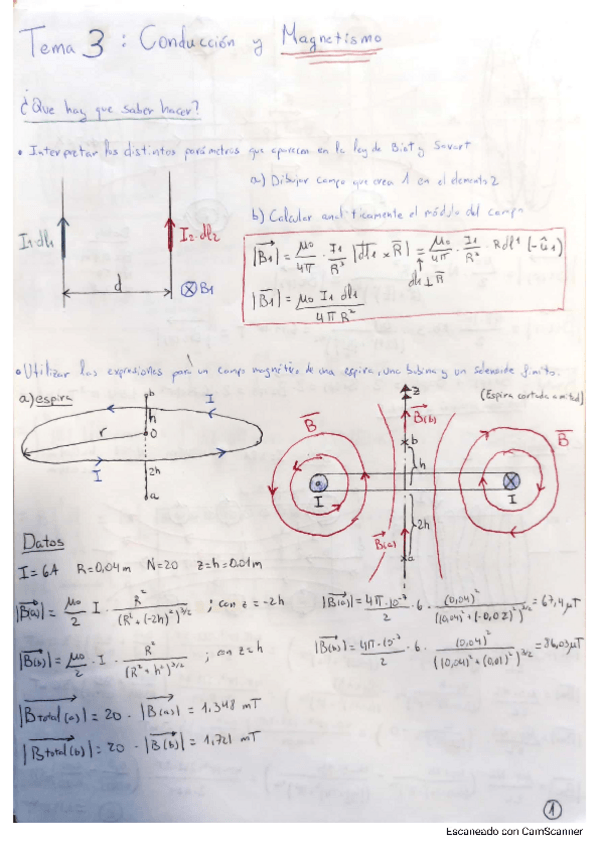 Tema 3: Conducción y Magnetismo
¿Que hay que saber hacer?
• Interpretar los distintos parámetros que aparecen en la ley de Biot y Savart
a) Dibujar campo que crea 1 en el elemento 2
b) Calcular analíticamente el módulo del campo
I1·dl1
I2·dl2
d
⊗B1
|B1| = μ0/4π · I1/R² |dl1 x R| = μ0/4π · I1/R² · R dl1 (-û1)
dl1 ⊥ R
|B1| = μ0 I1 dl1 / 4πR²
• Utilizar las expresiones para un campo magnético de una espira, una bobina y un solenoide finito.
a) espira
(Espira cortada a mitad)
b
h
I
r
O
I
2h
a
z
B(b)
B
B
b
h
I
I
2h
B(a)
a
Datos
I = 6A R = 0,04 m N = 20 z = h = 0.01 m
|B(a)| = μ0/2 · I · R²/(R² + (-2h)²)^3/2 ; con z = -2h
|B(a)| = 4π·10⁻⁷/2 · 6 · (0,04)²/((0,04)² + (-0,02)²)^3/2 = 67,4 μT
|B(b)| = μ0/2 · I · R²/(R² + h²)^3/2 ; con z = h
|B(b)| = 4π·10⁻⁷/2 · 6 · (0,04)²/((0,04)² + (0,01)²)^3/2 = 86,03 μT
|Btotal(a)| = 20 · |B(a)| = 1,348 mT
|Btotal(b)| = 20 · |B(b)| = 1,721 mT
1
Escaneado con CamScanner